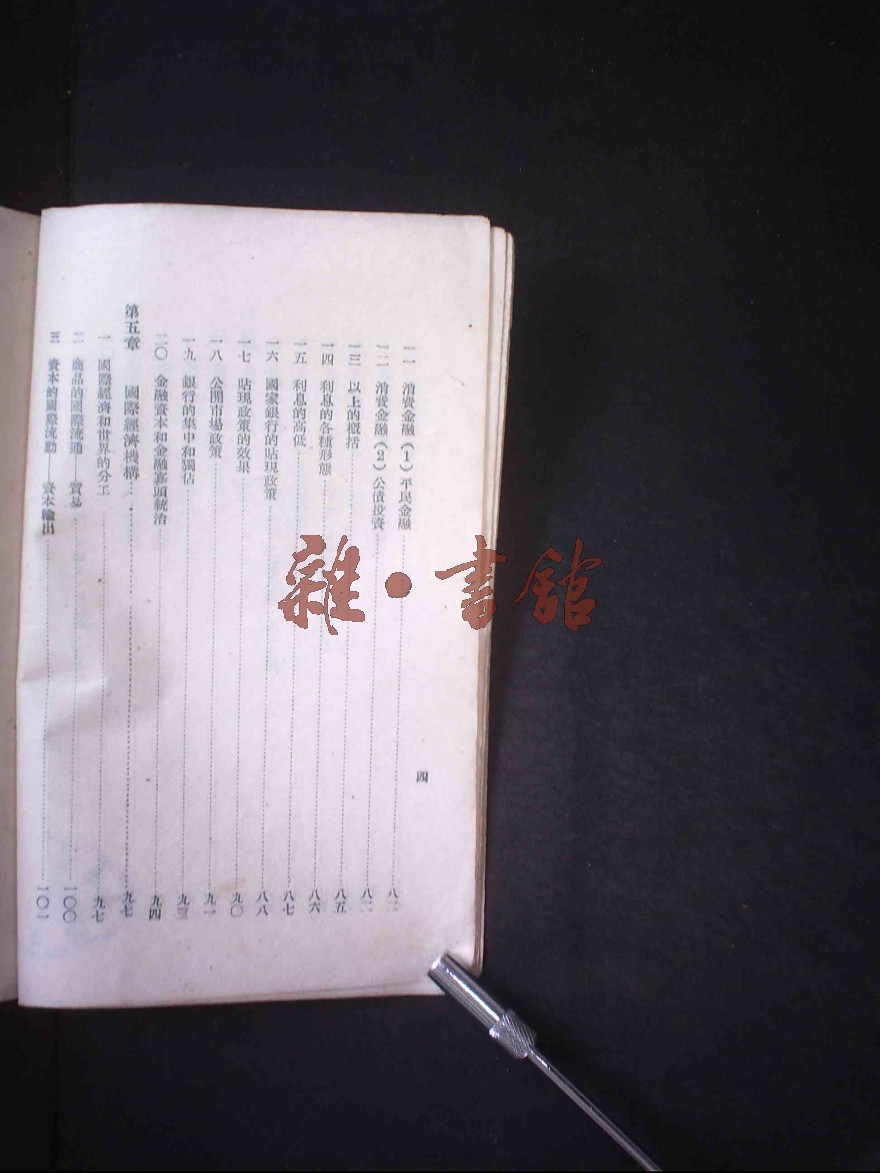 一一　消費金融(1)平民金融……八二
一二　消費金融(2)公債投資……八二
一三　以上的概括……八五
一四　利息的各種形態……八六
一五　利息的高低……八七
一六　國家銀行的貼現政策……八八
一七　貼現政策的效果……九〇
一八　公開市場政策……九一
一九　銀行的集中和獨佔……九三
二〇　金融資本和金融寡頭統治……九四
第五章　國際經濟機構……九七
一　國際經濟和世界的分工……九七
二　商品的國際流通——貿易……一〇〇
三　資本的國際流動——資本輸出……一〇一
四
雜·書館